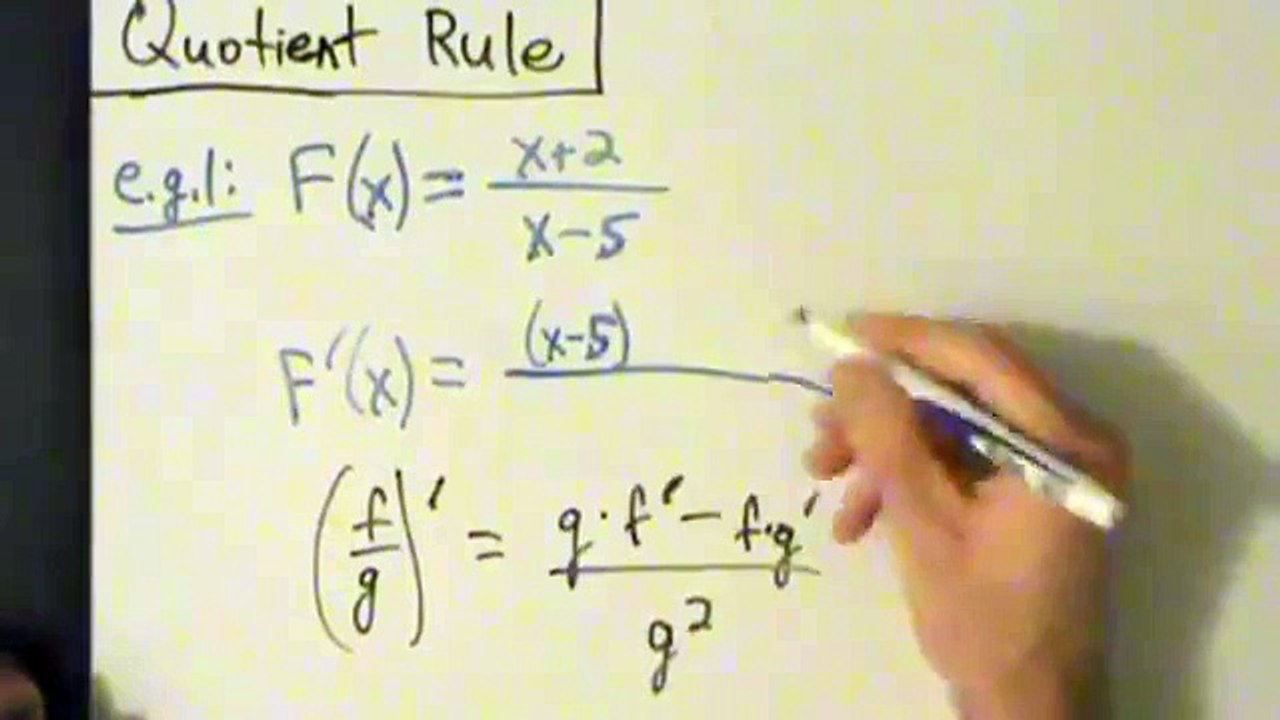 Quotient Rule
e.g.1: F(x) = x+2 / x-5
F'(x) = (x-5)
(f/g)' = g·f' - f·g' / g²